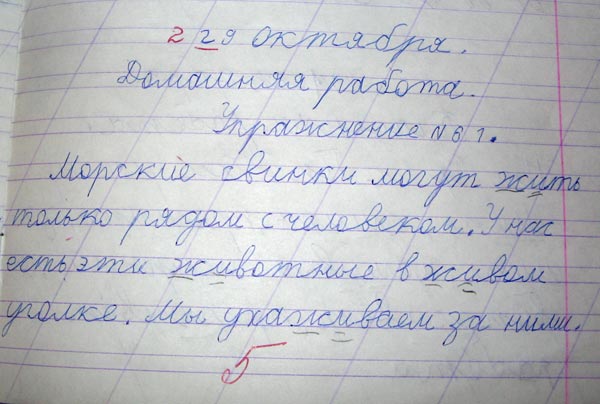 2 29 октября.
Домашняя работа.
Упражнение №61.
Морские свинки могут жить
только рядом с человеком. У нас
есть эти животные в живом
уголке. Мы ухаживаем за ними.
5